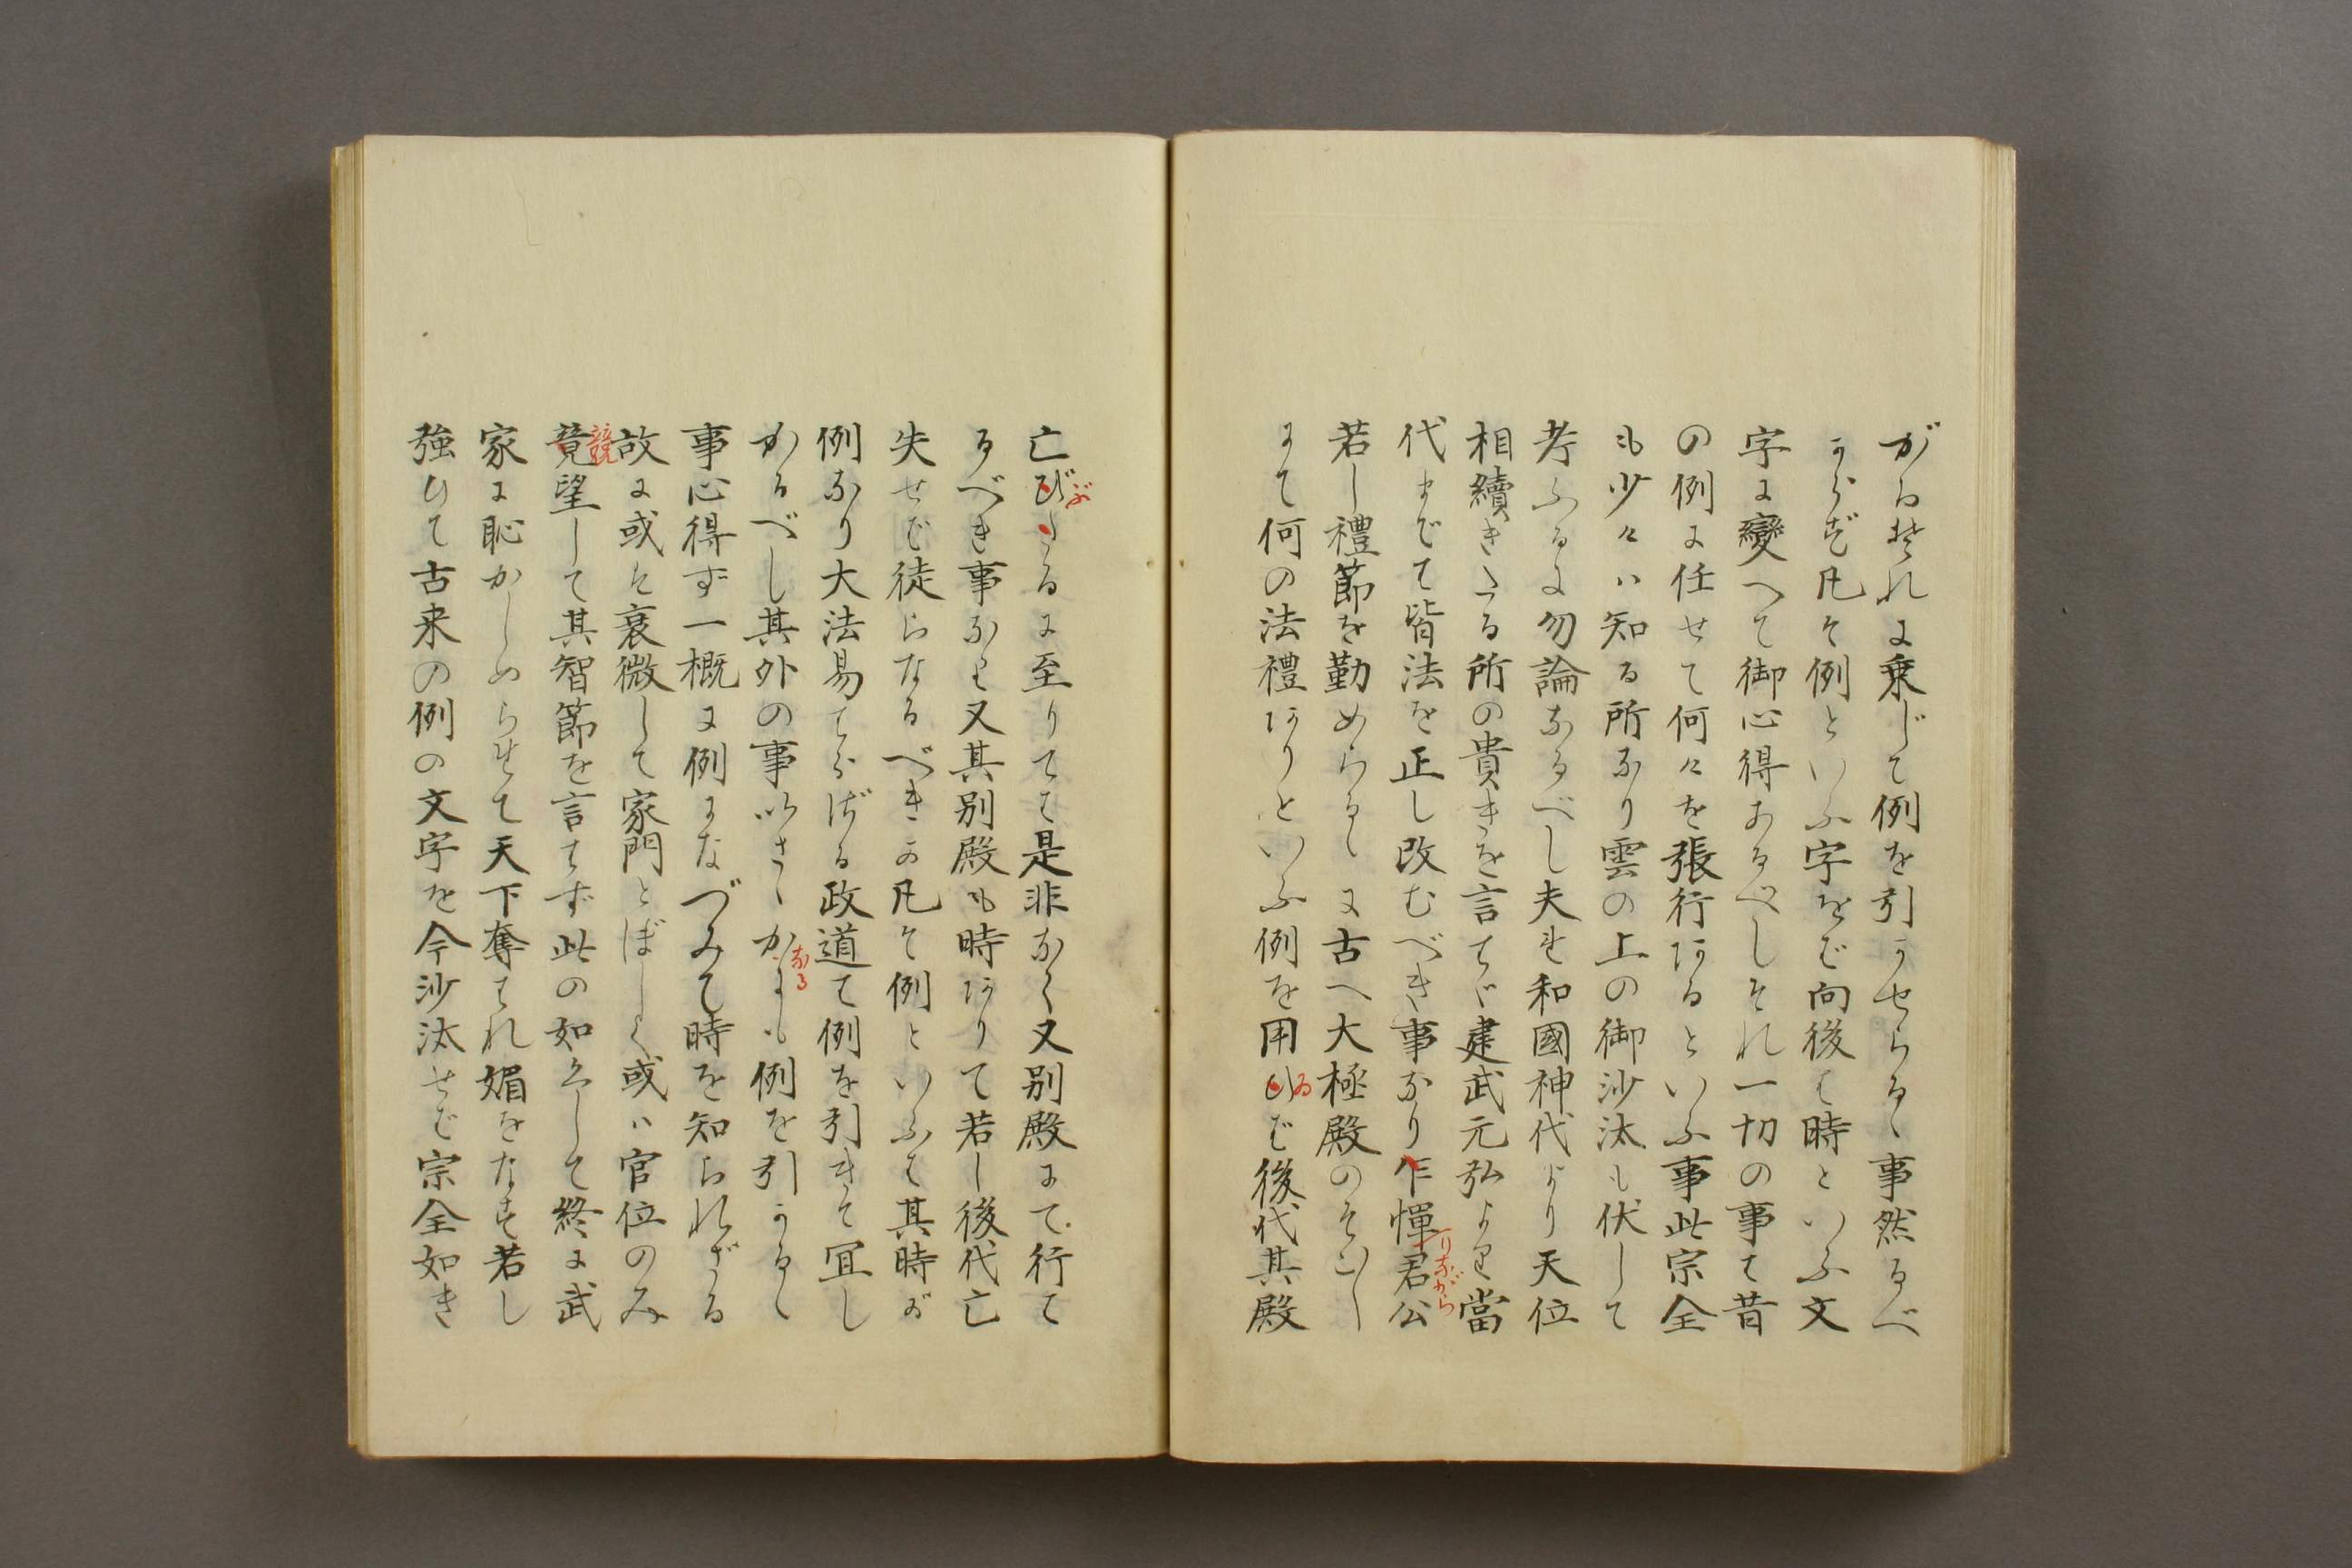 がゐ其れに乗じて例を引かせらるゝ事然るべ
からず凡そ例といふ字をば向後は時といふ文
字に變へて御心得あるべしそれ一切の事は昔
の例に任せて何々を張行あるといふ事此宗全
も少々ハ知る所なり雲の上の御沙汰も伏して
考ふるに勿論なるべし夫れ和國神代より天位
相續きたる所の貴きを言はゞ建武元弘より當
代までて皆法を正し改むべき事なり乍憚君公
りながら
若し禮節を勤めらるゝに古へ大極殿のそこ〳〵
にて何の法禮ありといふ例を用ひば後代其殿
ゐ
亡びたるに至りては是非なく又別殿にて行は
ぶ
るべき事なり又其別殿も時ありて若し後代亡
失せば徒らなるべきか凡そ例といふは其時が
例なり大法易はらざる政道は例を引きて宜し
かるべし其外の事いさゝかにも例を引かるゝ
なる
事心得ず一概に例になづみて時を知られざる
故に或は衰微して家門とぼしく或ハ官位のみ
竟望して其智節を言はず此の如くして終に武
競
家に恥かしめられて天下奪はれ媚をなす若し
強ひて古来の例の文字を今沙汰せば宗全如き